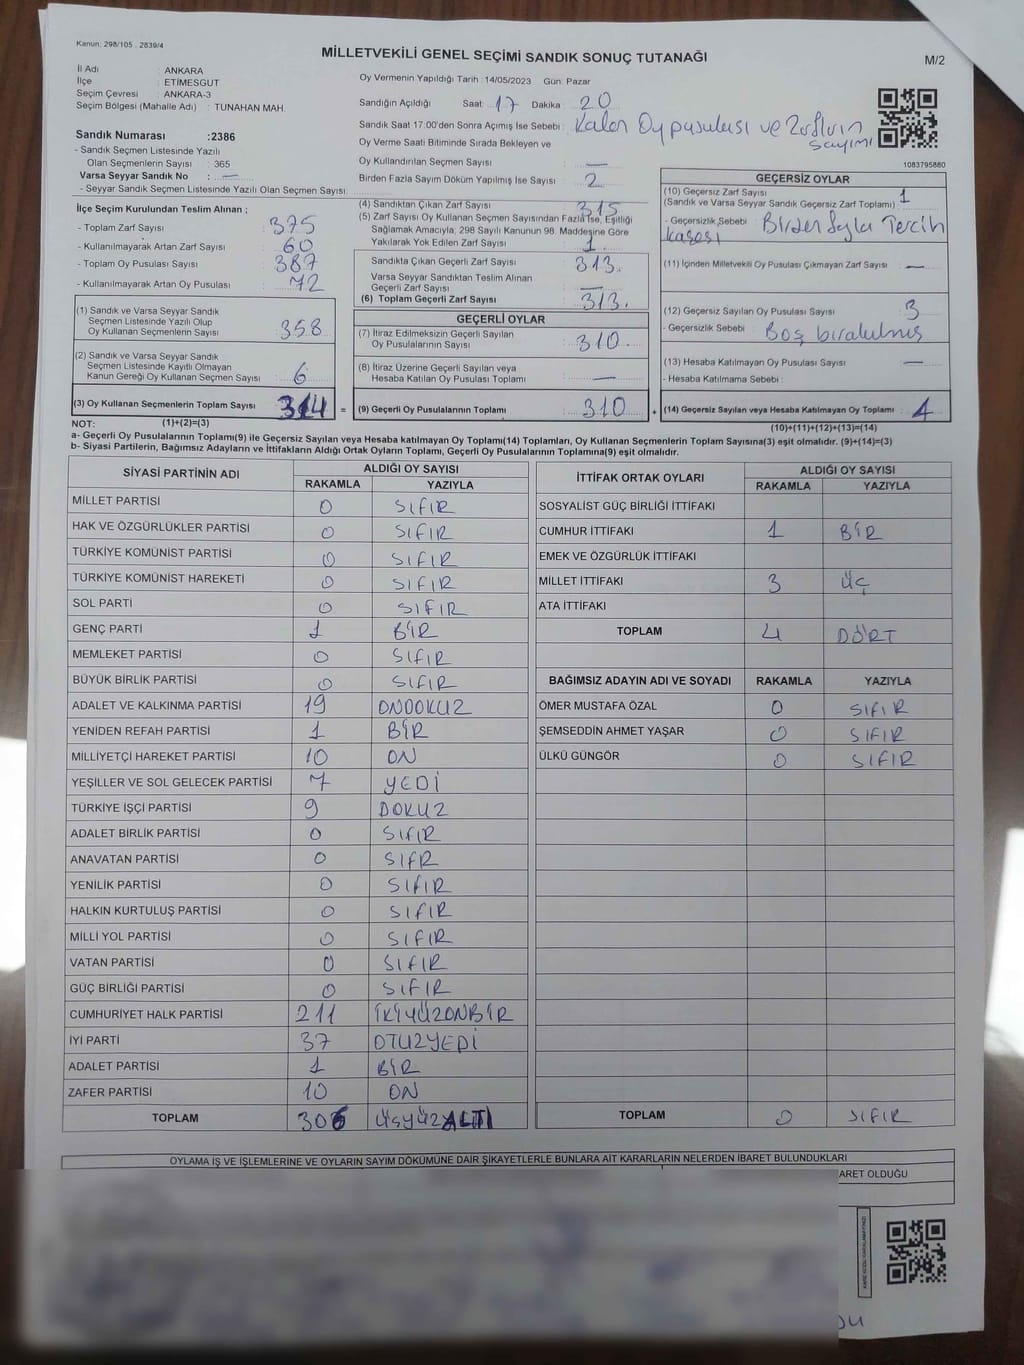 Kanun: 298/105 . 2839/4
MİLLETVEKİLİ GENEL SEÇİMİ SANDIK SONUÇ TUTANAĞI
M/2
İl Adı : ANKARA
İlçe : ETİMESGUT
Seçim Çevresi : ANKARA-3
Seçim Bölgesi (Mahalle Adı) : TUNAHAN MAH.
Sandık Numarası :2386
- Sandık Seçmen Listesinde Yazılı
Olan Seçmenlerin Sayısı : 365
Varsa Seyyar Sandık No : —
- Seyyar Sandık Seçmen Listesinde Yazılı Olan Seçmen Sayısı:
Oy Vermenin Yapıldığı Tarih :14/05/2023 Gün: Pazar
Sandığın Açıldığı Saat: 17 Dakika : 20
Sandık Saat 17:00'den Sonra Açılmış İse Sebebi : Kalan Oy pusulası ve Zarfların
sayımı
Oy Verme Saati Bitiminde Sırada Bekleyen ve
Oy Kullandırılan Seçmen Sayısı : —
Birden Fazla Sayım Döküm Yapılmış İse Sayısı : 2
1083795860
İlçe Seçim Kurulundan Teslim Alınan ;
- Toplam Zarf Sayısı : 375
- Kullanılmayarak Artan Zarf Sayısı : 60
- Toplam Oy Pusulası Sayısı : 387
- Kullanılmayarak Artan Oy Pusulası : 72
(1) Sandık ve Varsa Seyyar Sandık
Seçmen Listesinde Yazılı Olup
Oy Kullanan Seçmenlerin Sayısı : 358
(2) Sandık ve Varsa Seyyar Sandık
Seçmen Listesinde Kayıtlı Olmayan
Kanun Gereği Oy Kullanan Seçmen Sayısı : 6
(3) Oy Kullanan Seçmenlerin Toplam Sayısı : 314 =
(4) Sandıktan Çıkan Zarf Sayısı : 315
(5) Zarf Sayısı Oy Kullanan Seçmen Sayısından Fazla İse, Eşitliği
Sağlamak Amacıyla; 298 Sayılı Kanunun 98. Maddesine Göre
Yakılarak Yok Edilen Zarf Sayısı : 1.
Sandıkta Çıkan Geçerli Zarf Sayısı : 313.
Varsa Seyyar Sandıktan Teslim Alınan
Geçerli Zarf Sayısı : —
(6) Toplam Geçerli Zarf Sayısı : 313.
GEÇERLİ OYLAR
(7) İtiraz Edilmeksizin Geçerli Sayılan
Oy Pusulalarının Sayısı : 310.
(8) İtiraz Üzerine Geçerli Sayılan veya
Hesaba Katılan Oy Pusulası Toplamı : —
(9) Geçerli Oy Pusulalarının Toplamı : 310 +
GEÇERSİZ OYLAR
(10) Geçersiz Zarf Sayısı : 1
(Sandık ve Varsa Seyyar Sandık Geçersiz Zarf Toplamı)
- Geçersizlik Sebebi : Birden fazla Tercih
kaşesi
(11) İçinden Milletvekili Oy Pusulası Çıkmayan Zarf Sayısı : —
(12) Geçersiz Sayılan Oy Pusulası Sayısı : 3
- Geçersizlik Sebebi : Boş bırakılmış
(13) Hesaba Katılmayan Oy Pusulası Sayısı : —
- Hesaba Katılmama Sebebi :
(14) Geçersiz Sayılan veya Hesaba Katılmayan Oy Toplamı : 4
NOT: (1)+(2)=(3) (10)+(11)+(12)+(13)=(14)
a- Geçerli Oy Pusulalarının Toplamı(9) ile Geçersiz Sayılan veya Hesaba katılmayan Oy Toplamı(14) Toplamları, Oy Kullanan Seçmenlerin Toplam Sayısına(3) eşit olmalıdır. (9)+(14)=(3)
b- Siyasi Partilerin, Bağımsız Adayların ve İttifakların Aldığı Ortak Oyların Toplamı, Geçerli Oy Pusulalarının Toplamına(9) eşit olmalıdır.
SİYASİ PARTİNİN ADI ALDIĞI OY SAYISI
RAKAMLA YAZIYLA
MİLLET PARTİSİ 0 SIFIR
HAK VE ÖZGÜRLÜKLER PARTİSİ 0 SIFIR
TÜRKİYE KOMÜNİST PARTİSİ 0 SIFIR
TÜRKİYE KOMÜNİST HAREKETİ 0 SIFIR
SOL PARTİ 0 SIFIR
GENÇ PARTİ 1 BİR
MEMLEKET PARTİSİ 0 SIFIR
BÜYÜK BİRLİK PARTİSİ 0 SIFIR
ADALET VE KALKINMA PARTİSİ 19 ONDOKUZ
YENİDEN REFAH PARTİSİ 1 BİR
MİLLİYETÇİ HAREKET PARTİSİ 10 ON
YEŞİLLER VE SOL GELECEK PARTİSİ 7 YEDİ
TÜRKİYE İŞÇİ PARTİSİ 9 DOKUZ
ADALET BİRLİK PARTİSİ 0 SIFIR
ANAVATAN PARTİSİ 0 SIFR
YENİLİK PARTİSİ 0 SIFIR
HALKIN KURTULUŞ PARTİSİ 0 SIFIR
MİLLİ YOL PARTİSİ 0 SIFIR
VATAN PARTİSİ 0 SIFIR
GÜÇ BİRLİĞİ PARTİSİ 0 SIFIR
CUMHURİYET HALK PARTİSİ 211 İKİYÜZONBİR
İYİ PARTİ 37 OTUZYEDİ
ADALET PARTİSİ 1 BİR
ZAFER PARTİSİ 10 ON
TOPLAM 306 ÜÇYÜZALTI
İTTİFAK ORTAK OYLARI ALDIĞI OY SAYISI
RAKAMLA YAZIYLA
SOSYALİST GÜÇ BİRLİĞİ İTTİFAKI
CUMHUR İTTİFAKI 1 BİR
EMEK VE ÖZGÜRLÜK İTTİFAKI
MİLLET İTTİFAKI 3 ÜÇ
ATA İTTİFAKI
TOPLAM 4 DÖRT
BAĞIMSIZ ADAYIN ADI VE SOYADI RAKAMLA YAZIYLA
ÖMER MUSTAFA ÖZAL 0 SIFIR
ŞEMSEDDİN AHMET YAŞAR 0 SIFIR
ÜLKÜ GÜNGÖR 0 SIFIR
TOPLAM 0 SIFIR
OYLAMA İŞ VE İŞLEMLERİNE VE OYLARIN SAYIM DÖKÜMÜNE DAİR ŞİKAYETLERLE BUNLARA AİT KARARLARIN NELERDEN İBARET BULUNDUKLARI
ARET OLDUĞU